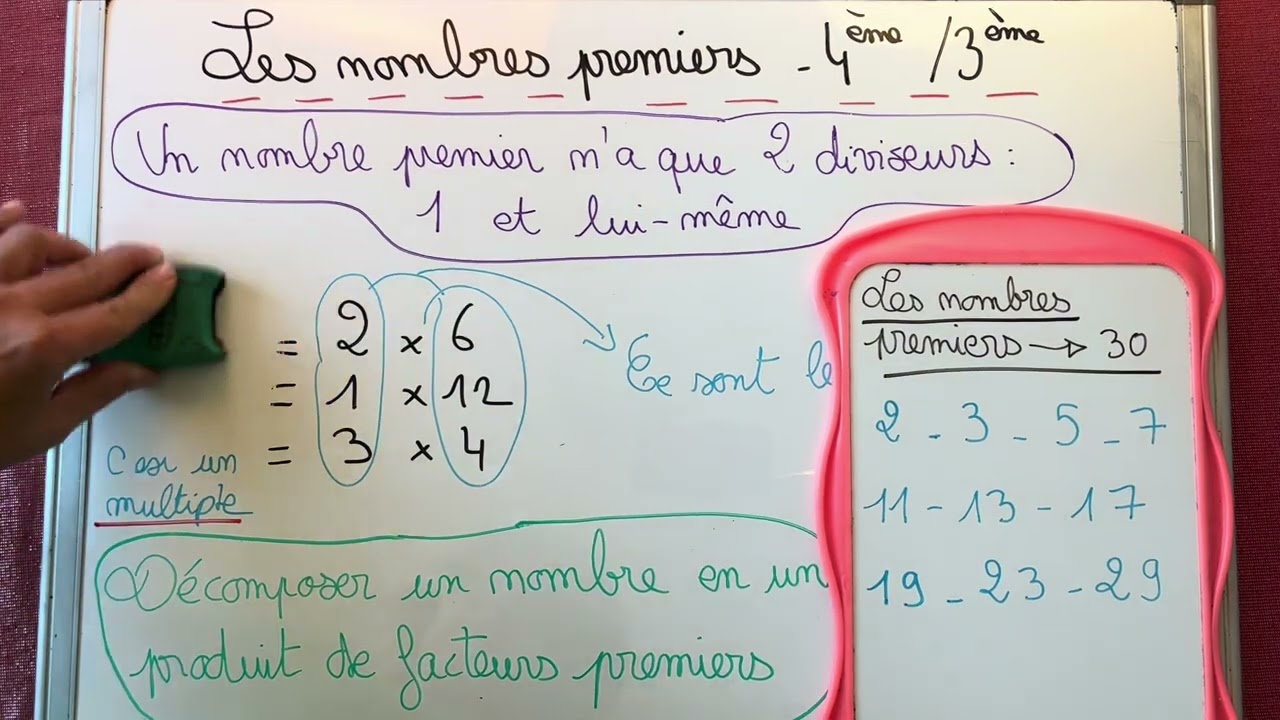 Les nombres premiers - 4ème / 3ème
Un nombre premier n'a que 2 diviseurs :
1 et lui-même
= 2 × 6
= 1 × 12
= 3 × 4
Ce sont le
C'est un
multiple
Décomposer un nombre en un
produit de facteurs premiers
Les nombres
premiers → 30
2 - 3 - 5 - 7
11 - 13 - 17
19 - 23 - 29